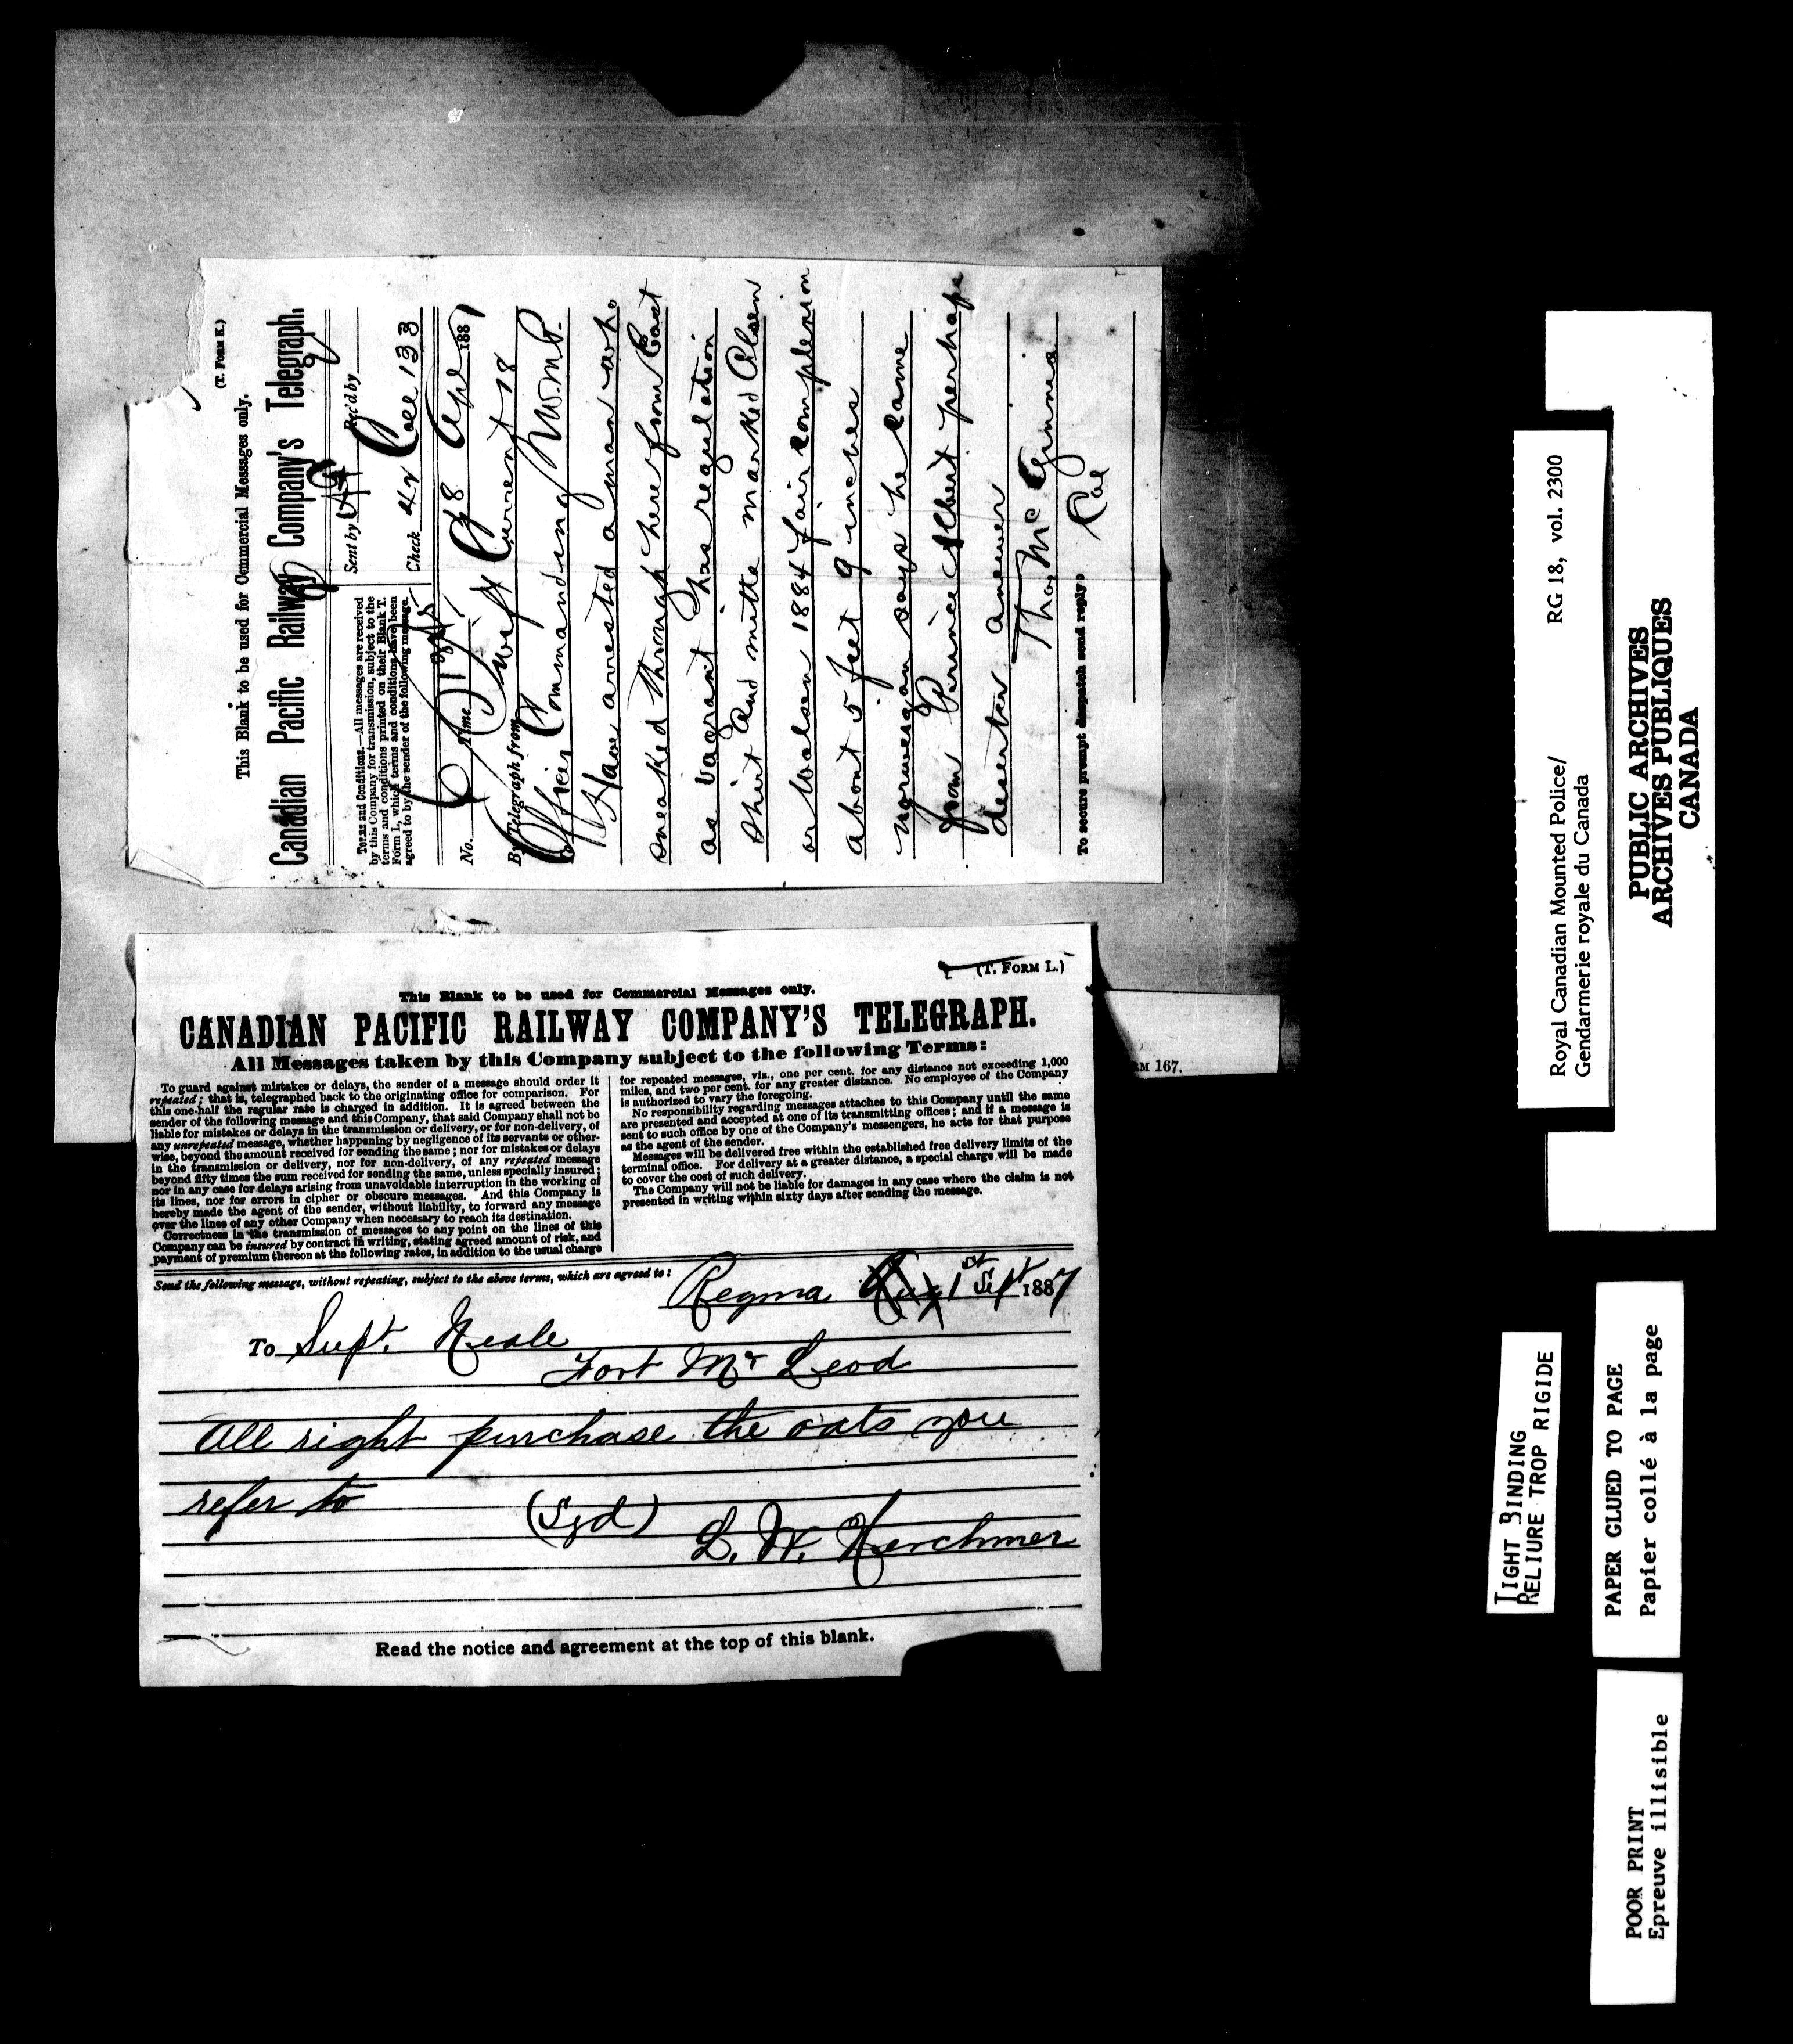 (T. FORM K.)
This Blank to be used for Commercial Messages only.
Canadian Pacific Railway Company's Telegraph.
Terms and Conditions.—All messages are received
by this Company for transmission, subject to the
terms and conditions printed on their Blank T.
Form L, which terms and conditions have been
agreed to by the sender of the following message.
Sent by Rec'd by
Check 42 Coll 133
No. Time 28 Apl 1887
By Telegraph from Swift Current 28
Officer Commanding NWMP.
Have arrested a man who
sneaked through here from East
as vagrant has regulation
shirt and mitts marked Olsen
or Walsen 1884 fair complexion
about 5 feet 9 inches
norwegan says he came
from Prince Albert perhaps
deserter answer
Thos McGinnis
To secure prompt despatch send reply
(T. FORM L.)
This Blank to be used for Commercial Messages only.
CANADIAN PACIFIC RAILWAY COMPANY'S TELEGRAPH.
All Messages taken by this Company subject to the following Terms:
To guard against mistakes or delays, the sender of a message should order it
repeated; that is, telegraphed back to the originating office for comparison. For
this one-half the regular rate is charged in addition. It is agreed between the
sender of the following message and this Company, that said Company shall not be
liable for mistakes or delays in the transmission or delivery, or for non-delivery, of
any unrepeated message, whether happening by negligence of its servants or other-
wise, beyond the amount received for sending the same; nor for mistakes or delays
in the transmission or delivery, nor for non-delivery, of any repeated message
beyond fifty times the sum received for sending the same, unless specially insured;
nor in any case for delays arising from unavoidable interruption in the working of
its lines, nor for errors in cipher or obscure messages. And this Company is
hereby made the agent of the sender, without liability, to forward any message
over the lines of any other Company when necessary to reach its destination.
Correctness in the transmission of messages to any point on the lines of this
Company can be insured by contract in writing, stating agreed amount of risk, and
payment of premium thereon at the following rates, in addition to the usual charge
for repeated messages, viz., one per cent. for any distance not exceeding 1,000
miles, and two per cent. for any greater distance. No employee of the Company
is authorized to vary the foregoing.
No responsibility regarding messages attaches to this Company until the same
are presented and accepted at one of its transmitting offices; and if a message is
sent to such office by one of the Company's messengers, he acts for that purpose
as the agent of the sender.
Messages will be delivered free within the established free delivery limits of the
terminal office. For delivery at a greater distance, a special charge will be made
to cover the cost of such delivery.
The Company will not be liable for damages in any case where the claim is not
presented in writing within sixty days after sending the message.
Send the following message, without repeating, subject to the above terms, which are agreed to:
Regina Aug 1st Sept 1887
To Supt. Neale
Fort McLeod
All right purchase the oats you
refer to
(Sgd) L. W. Herchmer
Read the notice and agreement at the top of this blank.
RM 167.
Royal Canadian Mounted Police/ RG 18, vol. 2300
Gendarmerie royale du Canada
PUBLIC ARCHIVES
ARCHIVES PUBLIQUES
CANADA
TIGHT BINDING
RELIURE TROP RIGIDE
PAPER GLUED TO PAGE
Papier collé à la page
POOR PRINT
Epreuve illisible